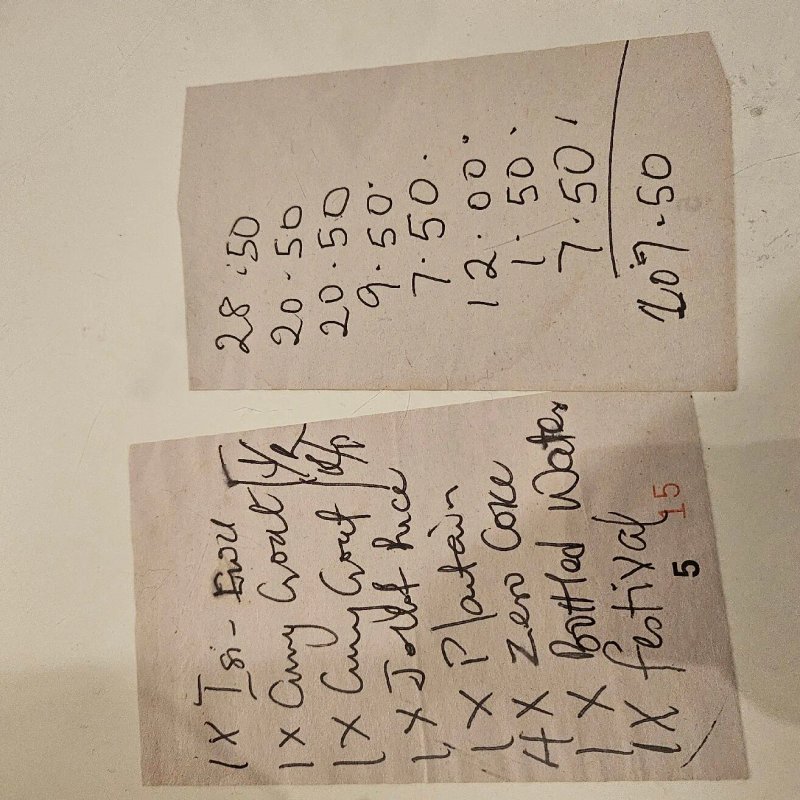 1 X Isi-Ewu
1 X Curry Goat
1 X Curry Goat R/P
1 X Jollof Rice
1 X Plantain
4 X Zero Coke
1 X Bottled Water
1 X festival
5 15
28.50
20.50
20.50
9.50
7.50
12.00
1.50
7.50
107.50